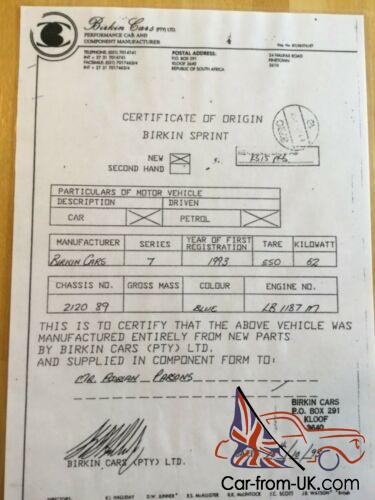 Birkin Cars (PTY) LTD.
PERFORMANCE CAR AND
COMPONENT MANUFACTURER
POSTAL ADDRESS:
P.O. BOX 291
KLOOF 3640
REPUBLIC OF SOUTH AFRICA
24 HALIFAX ROAD
PINETOWN
3610
CERTIFICATE OF ORIGIN
BIRKIN SPRINT
NEW
SECOND HAND
PARTICULARS OF MOTOR VEHICLE
DESCRIPTION DRIVEN
CAR PETROL
MANUFACTURER SERIES YEAR OF FIRST REGISTRATION TARE KILOWATT
BIRKIN CARS 7 1993 550 62
CHASSIS NO. GROSS MASS COLOUR ENGINE NO.
2120 89 BLUE LB 1187 M
THIS IS TO CERTIFY THAT THE ABOVE VEHICLE WAS
MANUFACTURED ENTIRELY FROM NEW PARTS
BY BIRKIN CARS (PTY) LTD.
AND SUPPLIED IN COMPONENT FORM TO:
MR. ADRIAN PARSONS
BIRKIN CARS
P.O. BOX 291
KLOOF
3640
BIRKIN CARS (PTY) LTD.
Car-from-UK.com